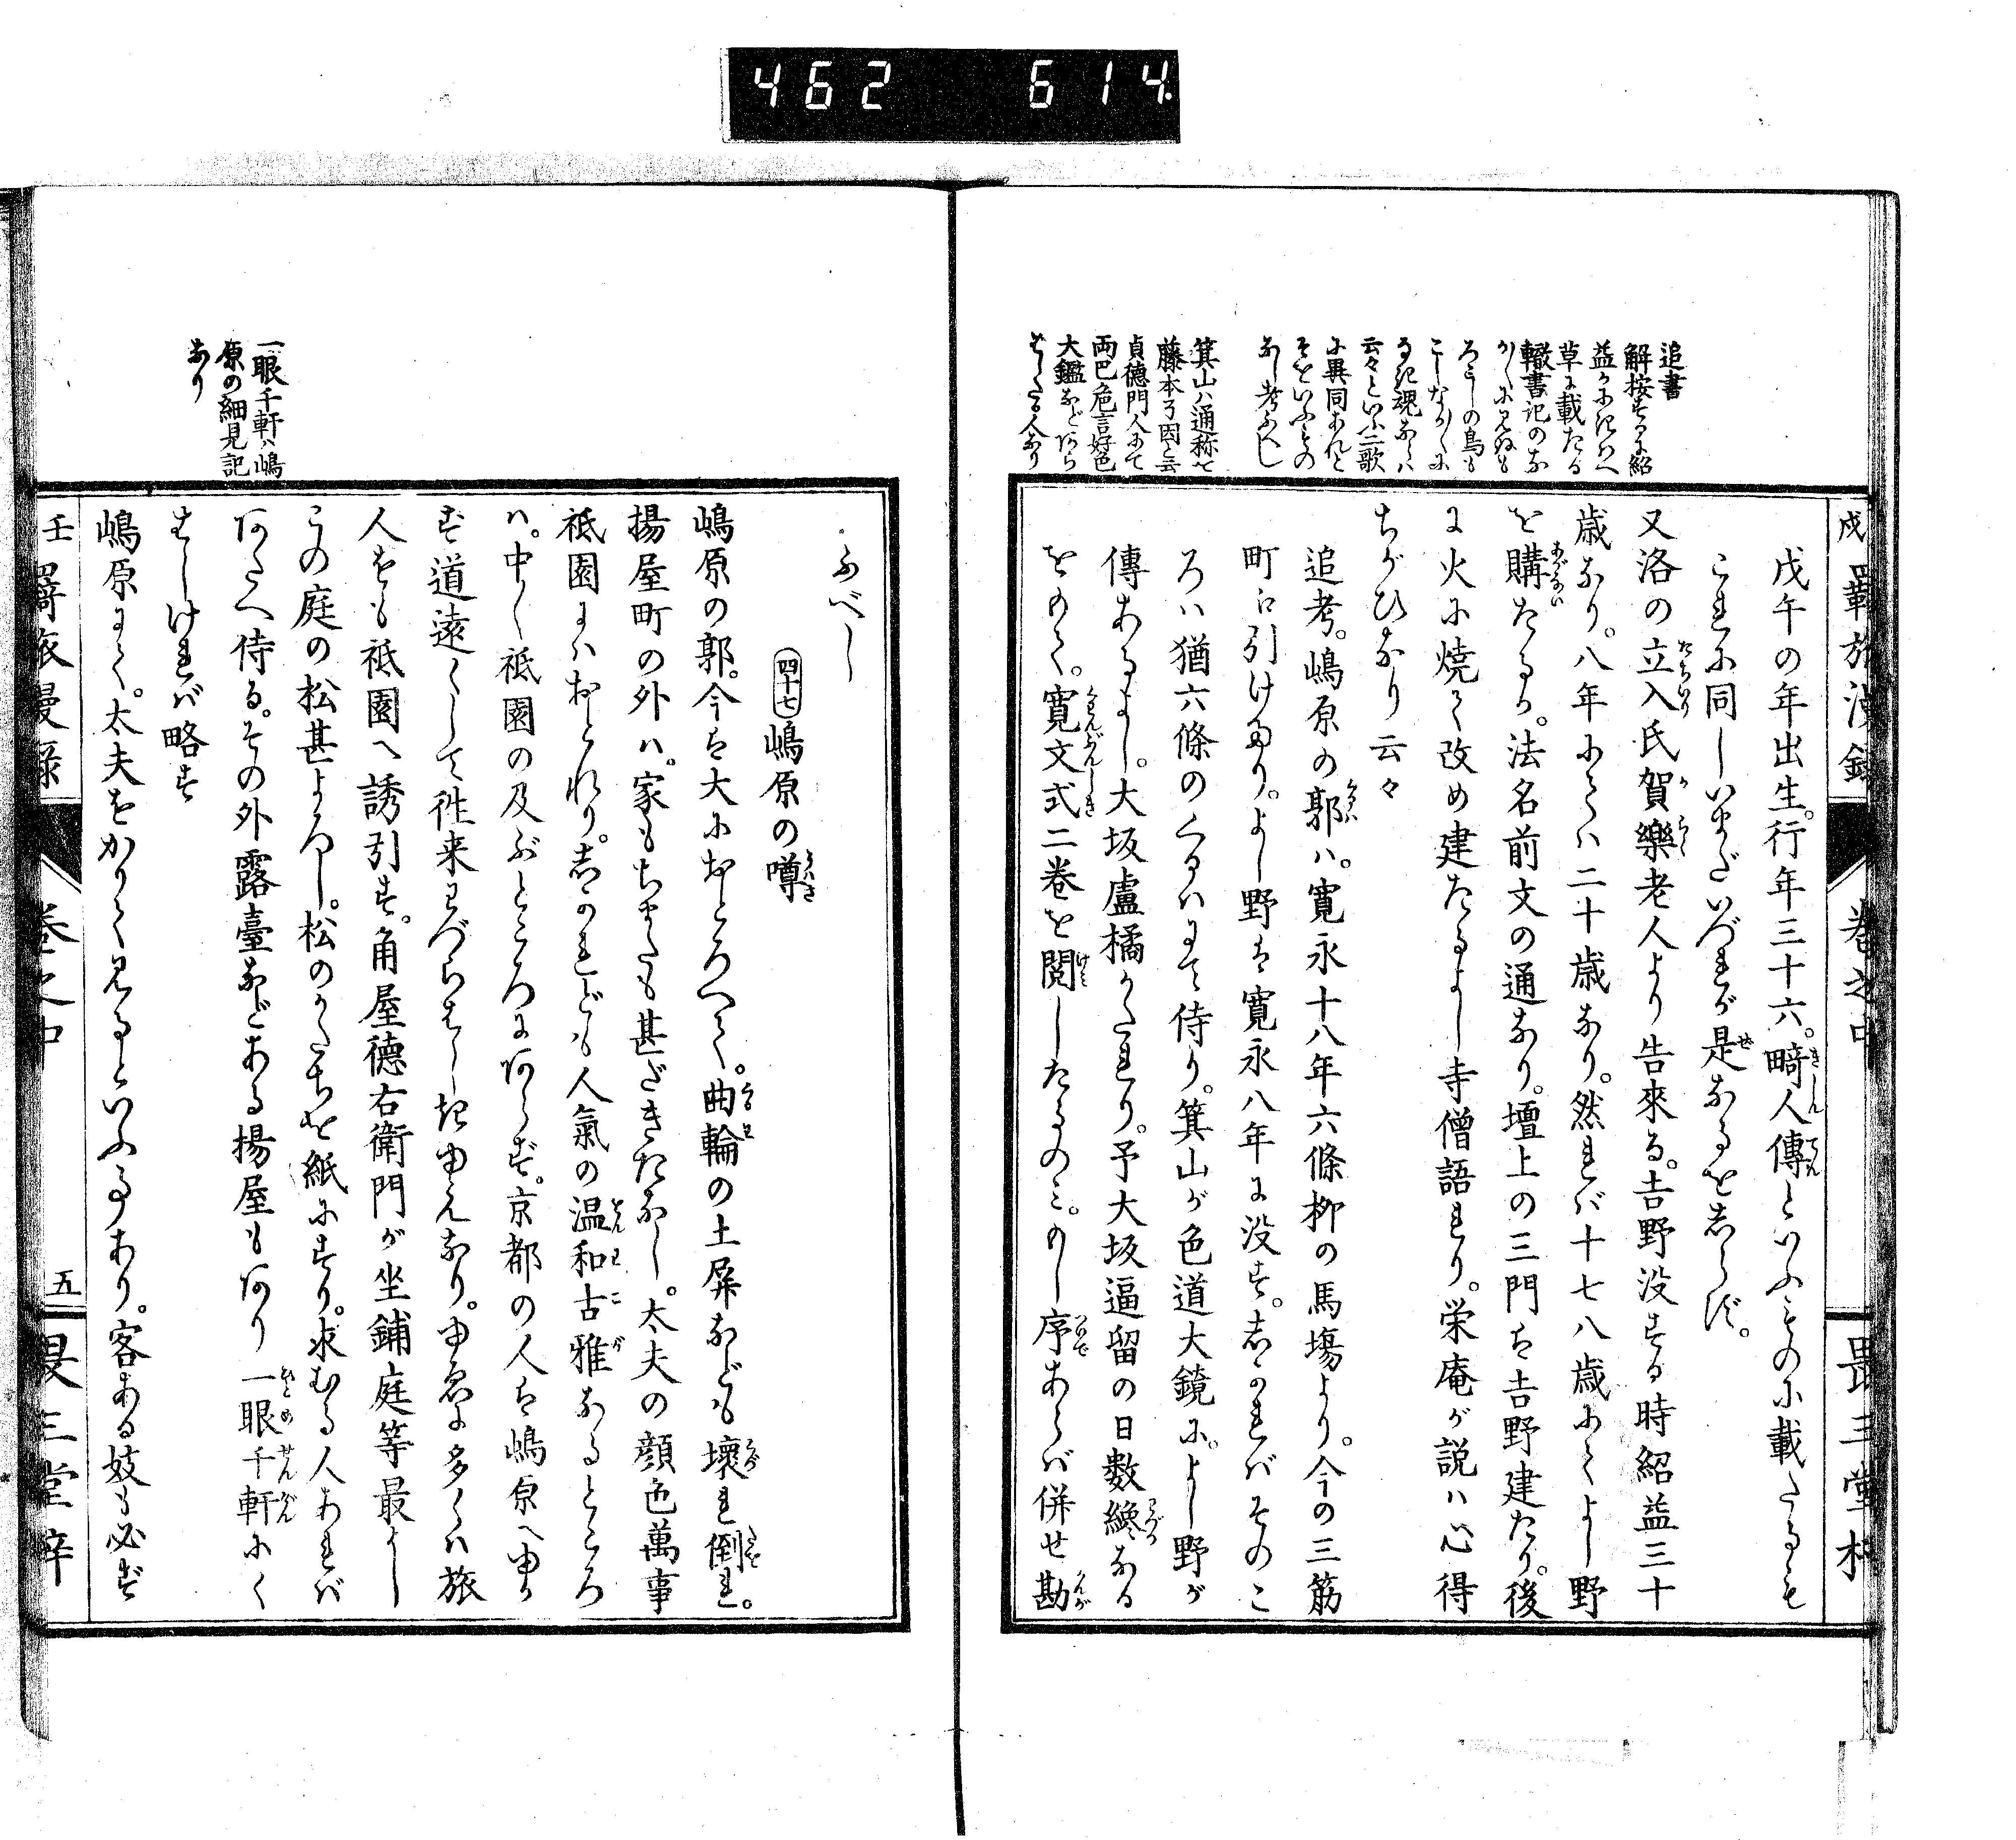 462 614
羇旅漫録
巻之中
畏三堂梓
追書
解按するに紹
益がにぎはへ
草に載たる
轍書記のな
かくに見ぬも
ろこしの鳥も
こしなかくに
云々といふ二歌
に異同あれど
そをいふもの
なし考ふべし
箕山ハ通称を
藤本了因と云
貞德門人にて
両巴巵言好色
大鑑などあら
はしたる人なり
戊午の年出生。行年三十六。畸人傳といふものに載たるも
これに同しいまだいづれが是なるをしらず。
又洛の立入氏賀樂老人より告來る。吉野没する時紹益三十
歳なり。八年にしてハ二十歳なり。然れバ十七八歳にてよし野
を購たるか。法名前文の通なり。壇上の三門は吉野建たり。後
に火に燒て改め建たるよし寺僧語れり。栄庵が説ハ心得
ちがひなり云々
追考。嶋原の郭ハ。寛永十八年六條柳の馬塲より。今の三筋
町に引けたり。よし野は寛永八年に没す。しかれバそのこ
ろハ猶六條のくるハにて侍り。箕山が色道大鏡に。よし野が
傳あるよし。大坂盧橘かたれり。予大坂逗留の日数纔なる
をもて。寛文式二巻を閲したるのミ。もし序あらバ併せ勘
ふべし
四十七 嶋原の噂
嶋原の郭。今は大におとろへて。曲輪の土屏なども壞れ倒れ。
揚屋町の外ハ。家もちまたも甚ざきたなし。太夫の顔色萬事
祇園にハおとれり。しかれども人氣の温和古雅なるところ
ハ。中々祇園の及ぶところにあらず。京都の人は嶋原へゆか
ず道遠くして徃来わづらはしきゆえなり。ゆゑに多くハ旅
人をも祇園へ誘引す。角屋德右衛門が坐鋪庭等最よし
この庭の松甚よろし。松のかたちを紙にすり。求むる人あれバ
あたへ侍る。その外露臺などある揚屋もあり 一眼千軒にく
はしけれバ略す
嶋原にて。太夫をかりて見るといふ事あり。客ある妓も必ず
一眼千軒ハ嶋
原の細見記
なり
壬
羇旅漫録
巻之中
五
畏三堂梓